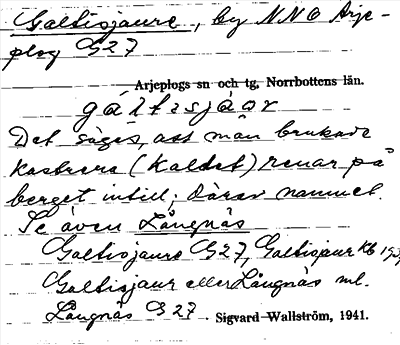 Galtisjaure, by NNO Arje-
plog G27
Arjeplogs sn och tg, Norrbottens län.
gáltisjáor
Det säges, att man brukade
kastrera (kaldet) renar på
berget intill; därav namnet.
Se även Långnäs
Galtisjaure G27, Galtisjaur Kb 1939
Galtisjaur eller Långnäs ml.
Långnäs G 27 Sigvard Wallström, 1941.